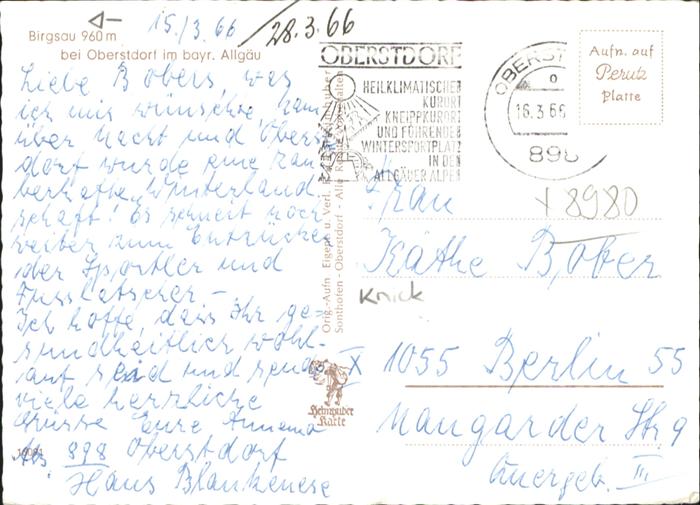 15./3.66 / 28.3.66
Birgsau 960 m
bei Oberstdorf im bayr. Allgäu
Liebe Bobers, was
ich mir wünschte, kam
über Nacht und Oberst
dorf wurde eine zau
berhafte Winterland
schaft! Es schneit noch
weiter zum Entzücken
der Sportler und
Fusslatscher –
Ich hoffe, dass Ihr ge=
sundheitlich wohl-
auf seid und sende
viele herzliche
Grüsse Eure
898 Oberstdorf
Haus Blankenese
Orig.-Aufn. Eigent. u. Verl.
Sonthofen - Oberstdorf - Alle
Heimhuber
Karte
OBERSTDORF
HEILKLIMATISCHER
KURORT
KNEIPPKURORT
UND FÜHRENDER
WINTERSPORTPLATZ
IN DEN
ALLGÄUER ALPEN
OBERST
16.3.66
898
Aufn. auf
Perutz
Platte
x 8980
Frau
Käthe Bober
Knick
X 1055 Berlin 55
Naugarder Str 9
Quergeb. III